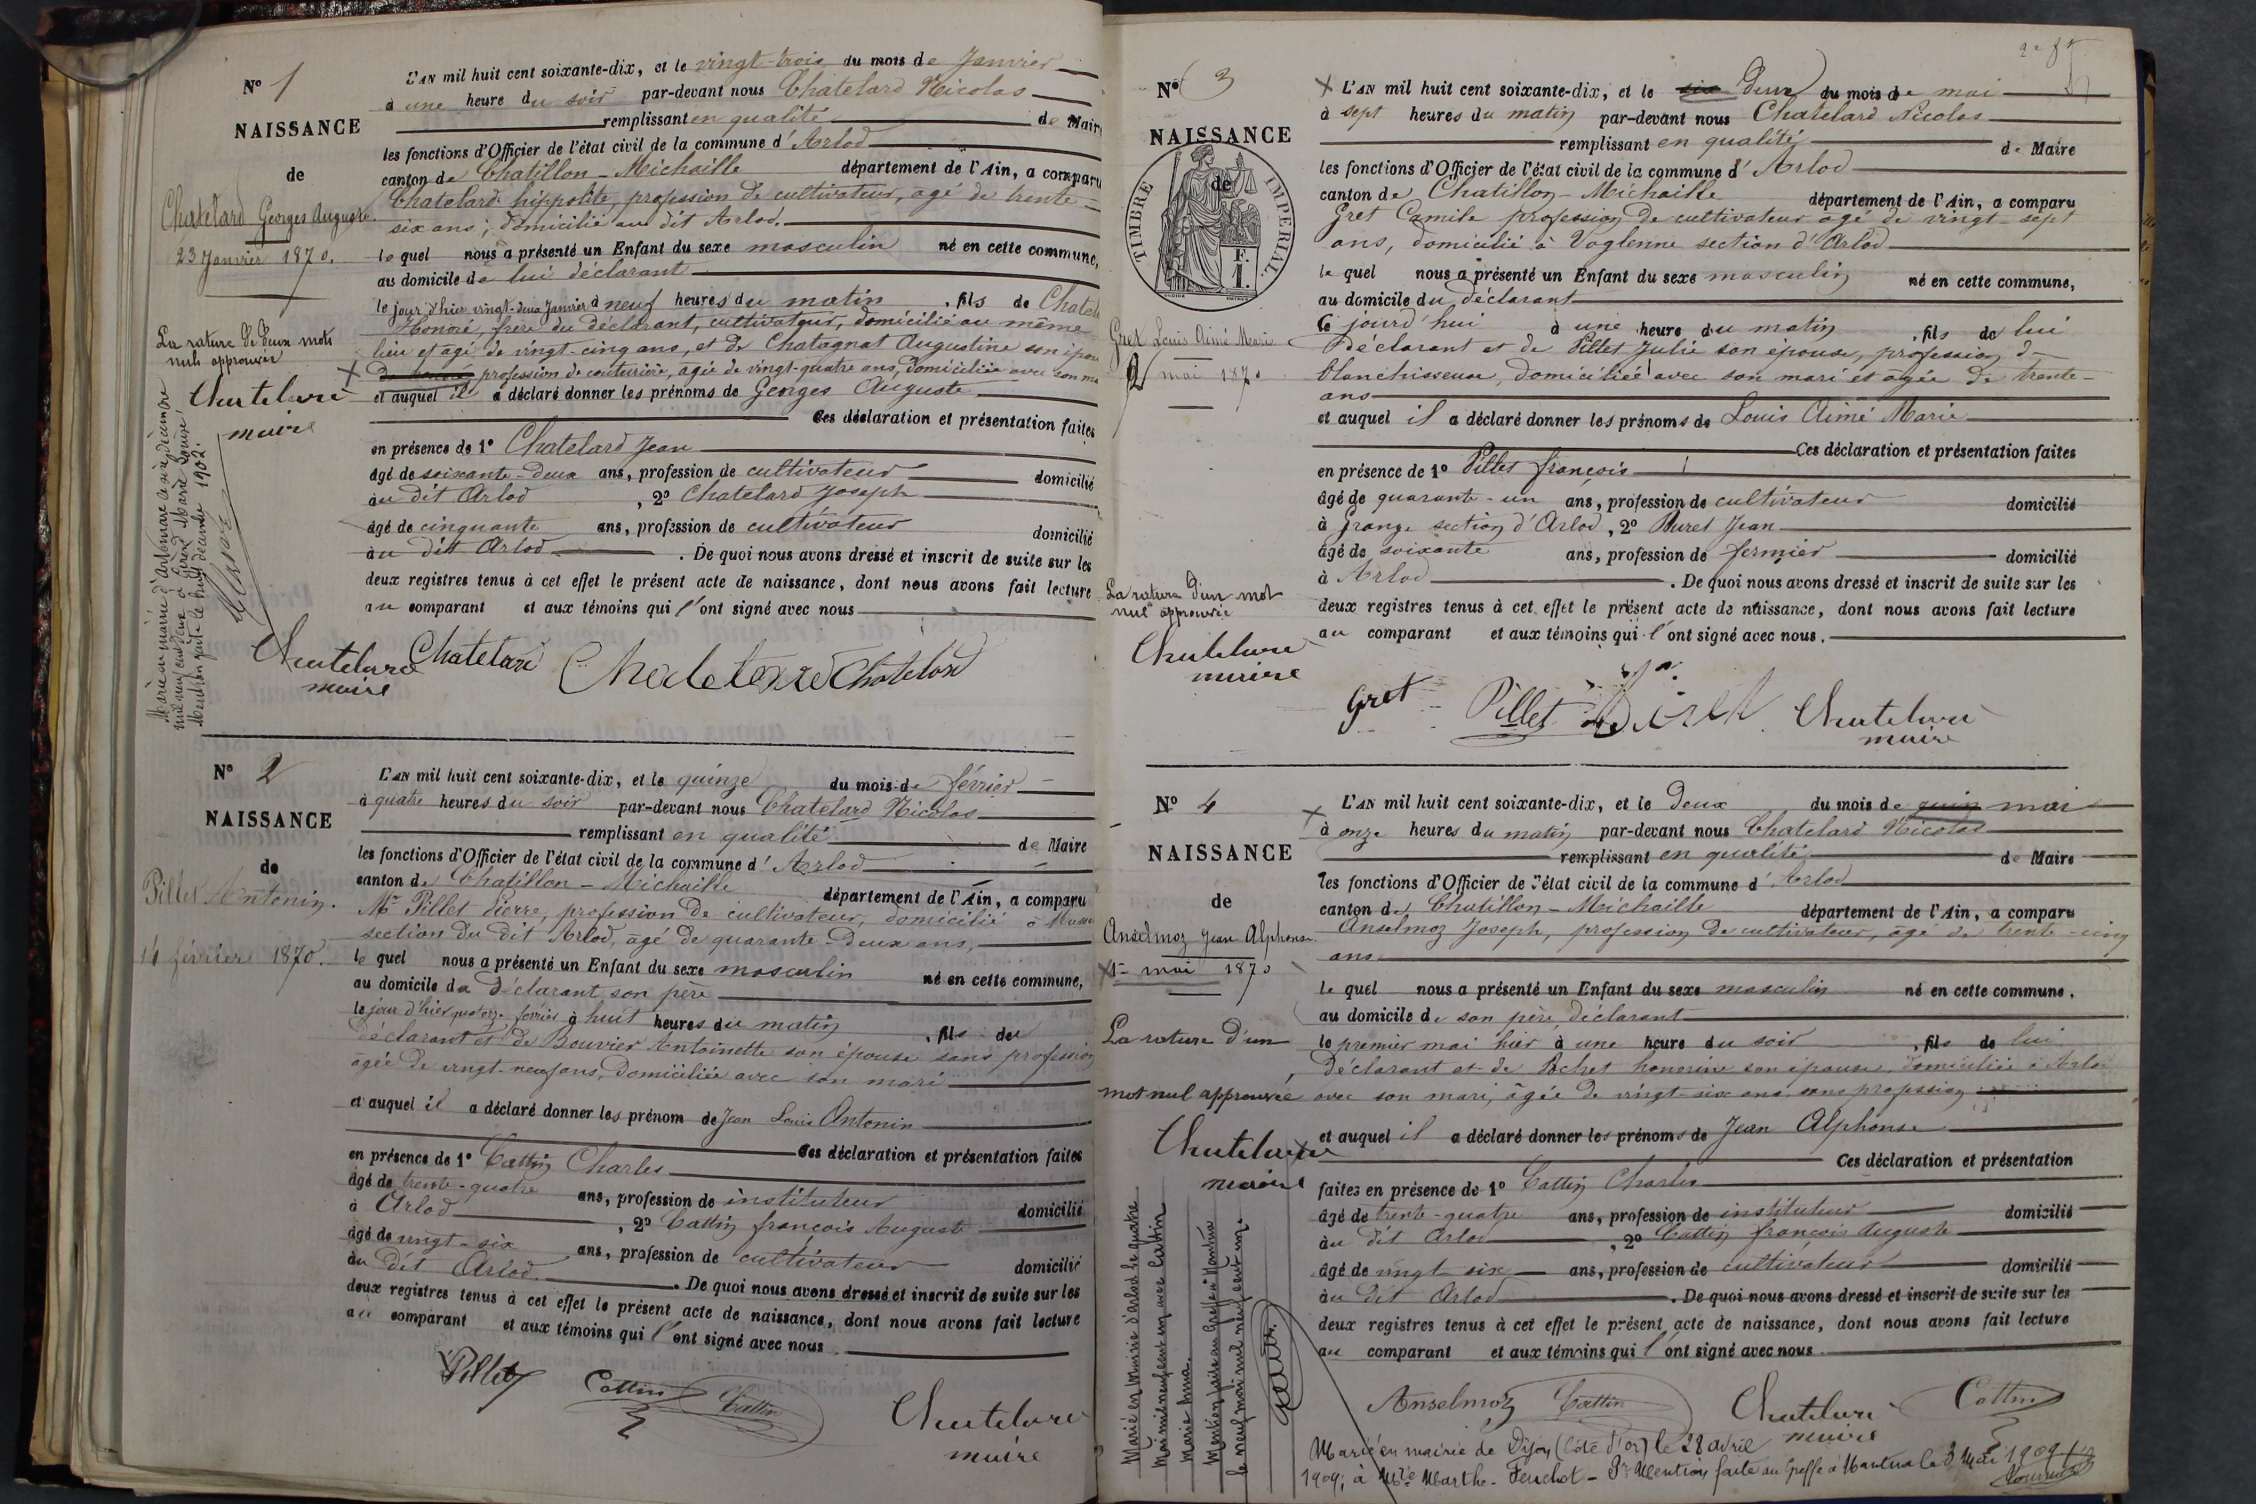 N° 1
NAISSANCE
de
Chatelard Georges Auguste.
23 Janvier 1870.
La rature de deux mots
nuls approuvée
Chatelard
maire
Marié en mairie d'Arbonnare ce six décembre
mil neuf cent deux à Marie Louise
Mention faite le huit décembre 1902.
L'AN mil huit cent soixante-dix, et le vingt-trois du mois de Janvier
à une heure du soir par-devant nous Chatelard Nicolas
remplissant en qualité de Maire
les fonctions d'Officier de l'état civil de la commune d'Arlod
canton de Chatillon-Michaille département de l'Ain, a comparu
Chatelard hippolite, profession de cultivateur, agé de trente-
six ans, domicilié au dit Arlod.
le quel nous a présenté un Enfant du sexe masculin né en cette commune,
au domicile de lui déclarant
le jour d'hier vingt-deux Janvier à neuf heures du matin, fils de Chatel
Honoré, frère du déclarant, cultivateur, domicilié au même
lieu et agé de vingt-cinq ans, et de Chatagnat Augustine son épou
profession de couturière, agée de vingt-quatre ans, domiciliée avec son ma
et auquel il a déclaré donner les prénoms de Georges Auguste
Ces déclaration et présentation faites
en présence de 1° Chatelard Jean
âgé de soixante-deux ans, profession de cultivateur domicilié
au dit Arlod, 2° Chatelard Joseph
âgé de cinquante ans, profession de cultivateur domicilié
au dit Arlod. De quoi nous avons dressé et inscrit de suite sur les
deux registres tenus à cet effet le présent acte de naissance, dont nous avons fait lecture
au comparant et aux témoins qui l'ont signé avec nous
Chatelard Chatelard Chatelard Chatelard
maire
N° 2
NAISSANCE
de
Pillet Antonin.
14 février 1870.
L'AN mil huit cent soixante-dix, et le quinze du mois de février
à quatre heures du soir par-devant nous Chatelard Nicolas
remplissant en qualité de Maire
les fonctions d'Officier de l'état civil de la commune d'Arlod
canton de Chatillon-Michaille département de l'Ain, a comparu
Mr Pillet Pierre, profession de cultivateur, domicilié à Musse
section du dit Arlod, âgé de quarante-deux ans,
le quel nous a présenté un Enfant du sexe masculin né en cette commune,
au domicile du déclarant son père
le jour d'hier quatorze février à huit heures du matin, fils du
déclarant et de Bouvier Antoinette son épouse sans profession
âgée de vingt-neuf ans, domiciliée avec son mari
et auquel il a déclaré donner les prénom de Jean Louis Antonin
Ces déclaration et présentation faites
en présence de 1° Cattin Charles
âgé de trente-quatre ans, profession de instituteur domicilié
à Arlod, 2° Cattin françois Auguste
âgé de vingt-six ans, profession de cultivateur domicilié
au dit Arlod. De quoi nous avons dressé et inscrit de suite sur les
deux registres tenus à cet effet le présent acte de naissance, dont nous avons fait lecture
au comparant et aux témoins qui l'ont signé avec nous
Pillet Cattin Cattin Chatelard
maire
N° 3
NAISSANCE
de
TIMBRE IMPERIAL
F.
1.
Gret Louis Aimé Marie
2 mai 1870
La rature d'un mot
nul approuvée
Chatelard
maire
L'AN mil huit cent soixante-dix, et le six deux du mois de mai
à sept heures du matin par-devant nous Chatelard Nicolas
remplissant en qualité de Maire
les fonctions d'Officier de l'état civil de la commune d'Arlod
canton de Chatillon-Michaille département de l'Ain, a comparu
Gret Camile profession de cultivateur agé de vingt-sept
ans, domicilié à Voglenne section d'Arlod
le quel nous a présenté un Enfant du sexe masculin né en cette commune,
au domicile du déclarant
Ce jourd'hui à une heure du matin, fils de lui
déclarant et de Pillet Julie son épouse, profession de
blanchisseuse, domiciliée avec son mari et agée de trente-
ans
et auquel il a déclaré donner les prénoms de Louis Aimé Marie
Ces déclaration et présentation faites
en présence de 1° Pillet françois
âgé de quarante-un ans, profession de cultivateur domicilié
à Grange section d'Arlod, 2° Buret Jean
âgé de soixante ans, profession de fermier domicilié
à Arlod. De quoi nous avons dressé et inscrit de suite sur les
deux registres tenus à cet effet le présent acte de naissance, dont nous avons fait lecture
au comparant et aux témoins qui l'ont signé avec nous.
Gret Pillet Chatelard
maire
N° 4
NAISSANCE
de
Anselmoz Jean Alphonse.
1er mai 1870
La rature d'un
mot nul approuvée
Chatelard
maire
Marié en mairie d'Arlod le quatre
Mai mil neuf cent un avec Cattin
Marie Anna.
Mention faite au Greffe à Nantua
le neuf mai mil neuf cent un.
L'AN mil huit cent soixante-dix, et le deux du mois de juin mai
à onze heures du matin par-devant nous Chatelard Nicolas
remplissant en qualité de Maire
les fonctions d'Officier de l'état civil de la commune d'Arlod
canton de Chatillon-Michaille département de l'Ain, a comparu
Anselmoz Joseph, profession de cultivateur, agé de trente-cinq
ans
le quel nous a présenté un Enfant du sexe masculin né en cette commune,
au domicile de son père déclarant
le premier mai hier à une heure du soir, fils de lui
déclarant et de Rochet honorine son épouse, domiciliée à Arlod
avec son mari, âgée de vingt-six ans, sans profession
et auquel il a déclaré donner les prénoms de Jean Alphonse
Ces déclaration et présentation
faites en présence de 1° Cattin Charles
âgé de trente-quatre ans, profession de instituteur domicilié
au dit Arlod, 2° Cattin françois Auguste
âgé de vingt-six ans, profession de cultivateur domicilié
au dit Arlod. De quoi nous avons dressé et inscrit de suite sur les
deux registres tenus à cet effet le présent acte de naissance, dont nous avons fait lecture
au comparant et aux témoins qui l'ont signé avec nous
Anselmoz Cattin Chatelard Cattin
maire
Marié en mairie de Dijon (Côte d'or) le 28 avril
1909, à Mlle Marthe Feuchot - Mention faite au Greffe à Nantua le 3 Mai 1909